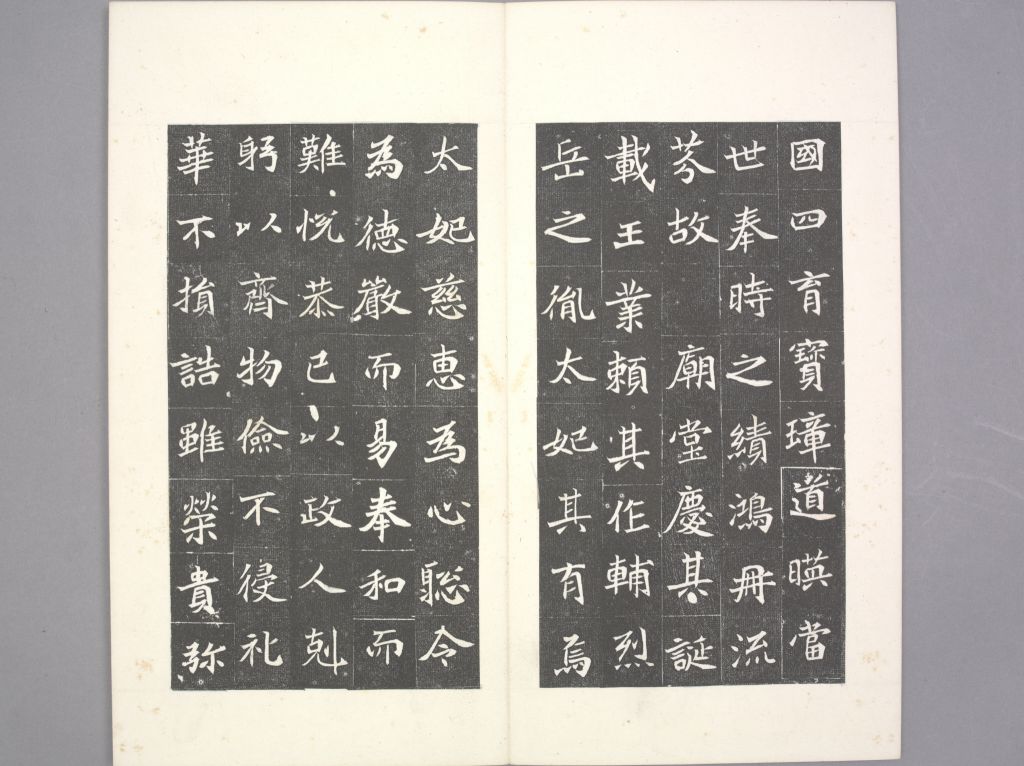 國四育寶璋道暎當
世奉時之績鴻冊流
芬故廟堂慶其誕
載王業賴其作輔烈
岳之胤太妃其有焉
太妃慈惠為心聡令
為德嚴而易奉和而
難恱恭已以政人剋
躬以齊物儉不侵礼
華不損誥雖榮貴弥